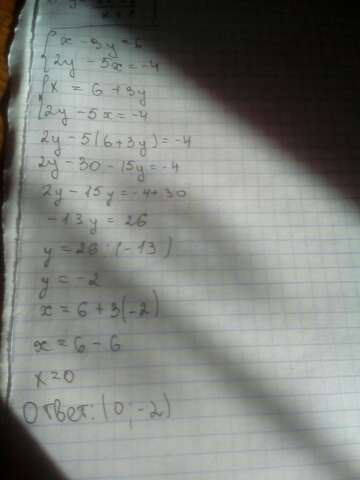 { x - 3y = 6
{ 2y - 5x = -4
{ x = 6 + 3y
{ 2y - 5x = -4
2y - 5(6+3y) = -4
2y - 30 - 15y = -4
2y - 15y = -4+30
-13y = 26
y = 26 : (-13)
y = -2
x = 6 + 3(-2)
x = 6 - 6
x = 0
Ответ: (0; -2)